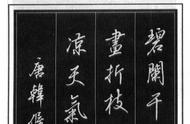 碧闌干
畫折枝
凉天氣
唐韓